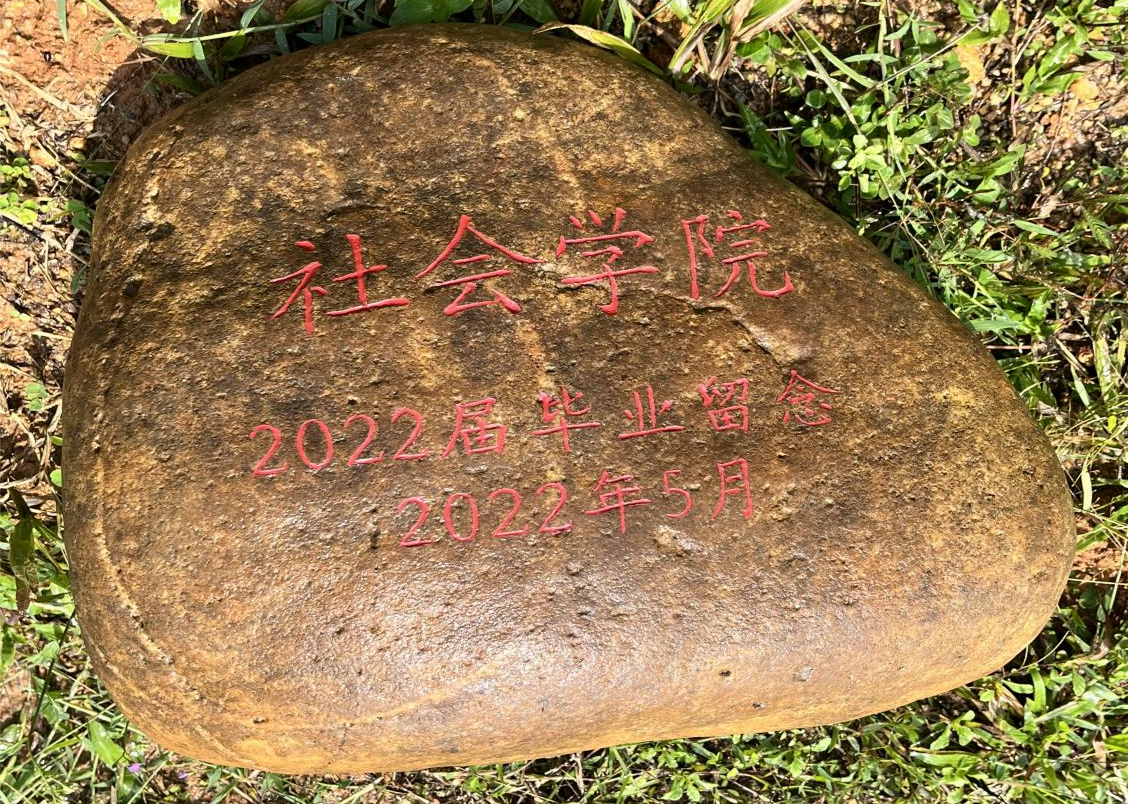 社会学院
2022届毕业留念
2022年5月